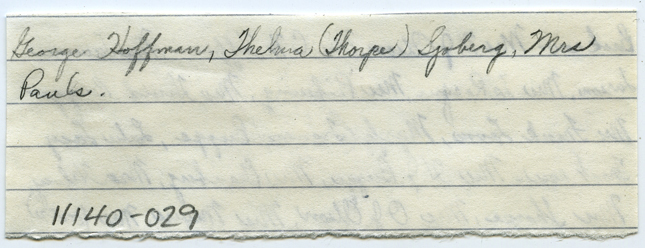 George Hoffman, Thelma (Thorpe) Sjoberg, Mrs
Pauls.
11140-029